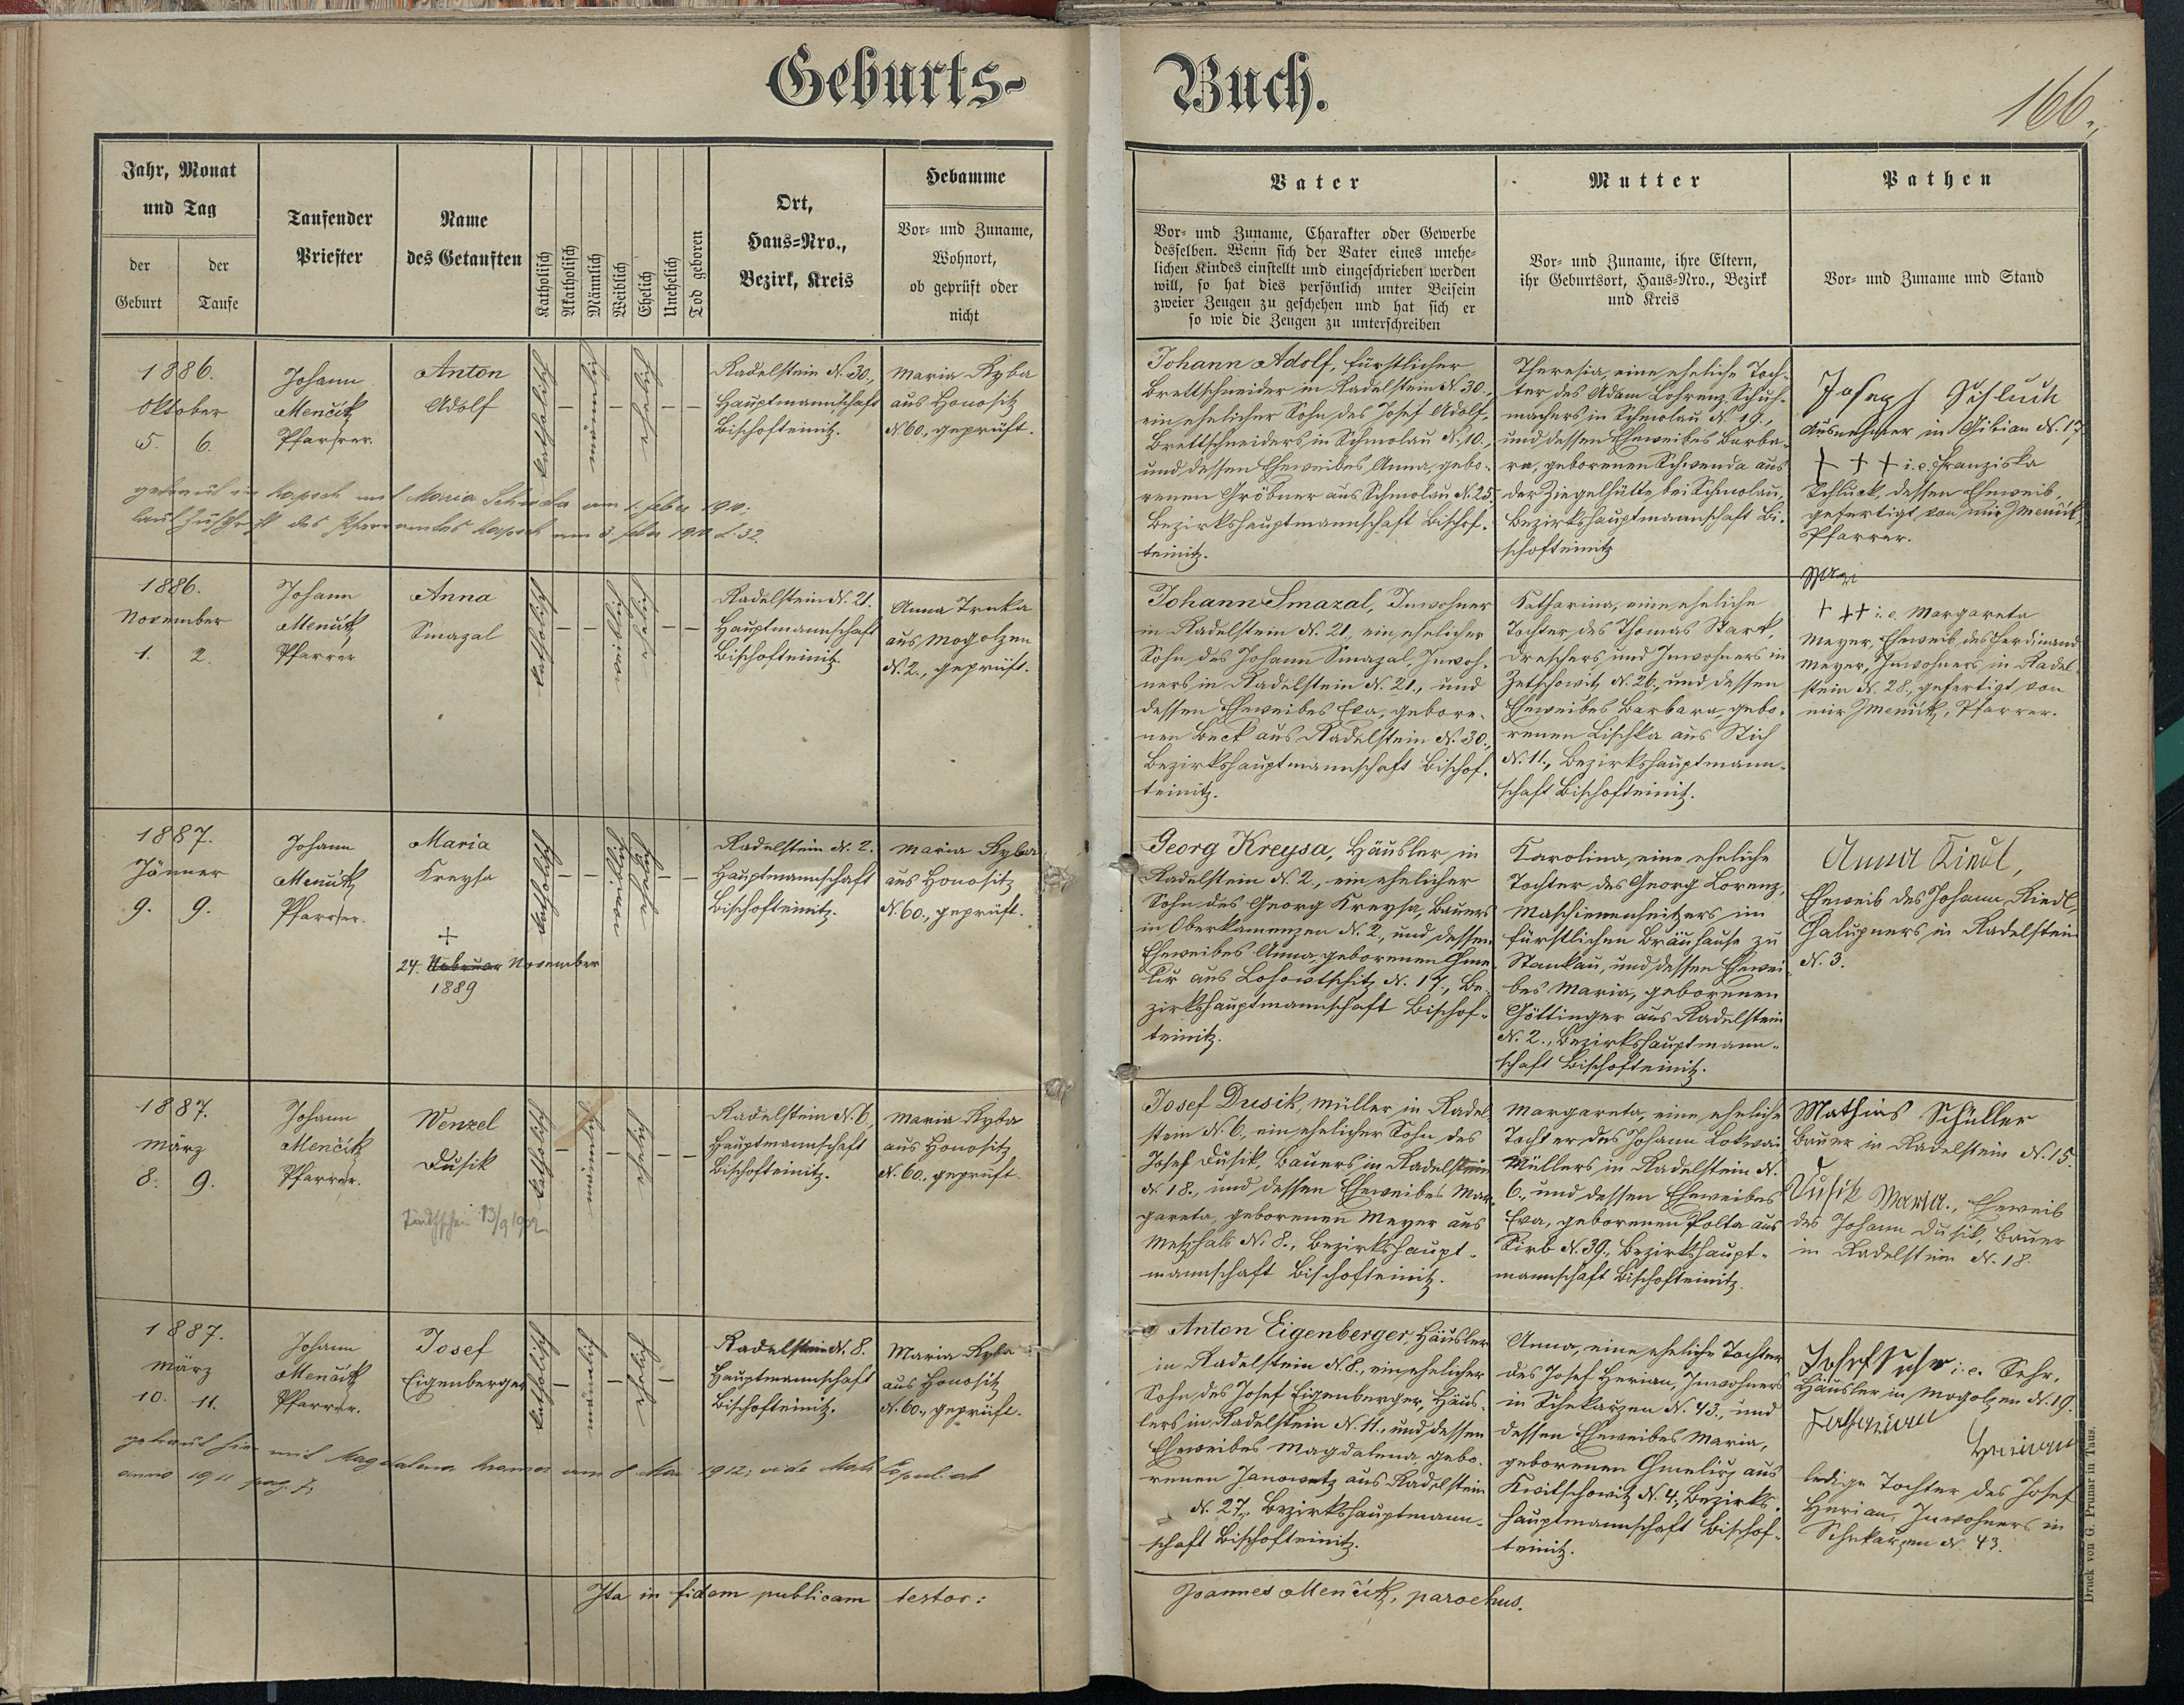 Geburts-
Buch.
166.
Jahr, Monat
und Tag
der
Geburt
der
Taufe
Taufender
Priester
Name
des Getauften
Katholisch
Akatholisch
Männlich
Weiblich
Ehelich
Unehelich
Tod geboren
Ort,
Haus-Nro.,
Bezirk, Kreis
Hebamme
Vor- und Zuname,
Wohnort,
ob geprüft oder
nicht
Vater
Vor- und Zuname, Charakter oder Gewerbe
desselben. Wenn sich der Vater eines unehe-
lichen Kindes einstellt und eingeschrieben werden
will, so hat dies persönlich unter Beisein
zweier Zeugen zu geschehen und hat sich er
so wie die Zeugen zu unterschreiben
Mutter
Vor- und Zuname, ihre Eltern,
ihr Geburtsort, Haus-Nro., Bezirk
und Kreis
Pathen
Vor- und Zuname und Stand
1886.
Oktober
5. 6.
Johann
Menčik
Pfarrer.
Anton
Adolf
katholisch
männlich
ehelich
Radelstein N. 30.,
Hauptmannschaft
Bischofteinitz.
Maria Ryba
aus Honositz
N. 60., geprüft.
Johann Adolf, fürstlicher
Brettschneider in Radelstein N. 30.,
ein ehelicher Sohn des Josef Adolf,
Brettschneiders in Schmolau N. 10.,
und dessen Eheweibes Anna, gebo-
renen Gröbner aus Schmolau N. 25
Bezirkshauptmannschaft Bischof-
teinitz.
Theresia, eine eheliche Toch-
ter des Adam Lohrenz, Schuh-
machers in Schmolau N. 19.,
und dessen Eheweibes Barba-
ra, geborenen Schwenda aus
der Ziegelhütte bei Schmolau,
Bezirkshauptmannschaft Bi-
schofteinitz
Josef
Ausnehmer in Gibian N. 17
+ + + i. e. Franziska
Schluck, dessen Eheweib,
gefertigt von mir J Menčik,
Pfarrer.
getraut in mit Maria am 1. Feber 1910;
laut Zuschrift des Pfarramtes am 3. Feber 1910 Z. 32.
1886.
November
1. 2.
Johann
Menčik
Pfarrer
Anna
Smazal
katholisch
weiblich
ehelich
Radelstein N. 21.
Hauptmannschaft
Bischofteinitz.
Anna Trnka
aus Mogolzen
N. 2., geprüft.
Johann Smazal, Inwohner
in Radelstein N. 21., ein ehelicher
Sohn des Johann Smazal, Inwoh-
ners in Radelstein N. 21., und
dessen Eheweibes Eva, gebore-
nen Beck aus Radelstein N. 30.,
Bezirkshauptmannschaft Bischof-
teinitz.
Katharina, eine eheliche
Tochter des Thomas Stark,
Dreschers und Inwohners in
Zetschowitz N. 26., und dessen
Eheweibes Barbara, gebo-
renen Lischka aus Stich
N. 11., Bezirkshauptmann-
schaft Bischofteinitz.
+ ++ i. e. Margareta
Meyer, Eheweib des Ferdinand
Meyer, Inwohners in Radel-
stein N. 28., gefertigt von
mir J Menčik, Pfarrer.
1887.
Jänner
9. 9.
Johann
Menčik
Pfarrer.
Maria
Kreysa
+
24. Februar November
1889
katholisch
weiblich
ehelich
Radelstein N. 2.
Hauptmannschaft
Bischofteinitz.
Maria Ryba
aus Honositz
N. 60., geprüft.
Georg Kreysa, Häusler in
Radelstein N. 2., ein ehelicher
Sohn des Georg Kreysa, Bauers
in Oberkamenzen N. 2., und dessen
Eheweibes Anna, geborenen Chme-
lir aus Lohowtschitz N. 17., Be-
zirkshauptmannschaft Bischof-
teinitz.
Karolina, eine eheliche
Tochter des Georg Lorenz,
Maschienenheitzers im
fürstlichen Bräuhause zu
Stankau, und dessen Ehewei-
bes Maria, geborenen
Göttinger aus Radelstein
N. 2., Bezirkshauptmann-
schaft Bischofteinitz.
Anna Riedl,
Eheweib des Johann Riedl,
Chalupners in Radelstein
N. 3.
1887.
März
8. 9.
Johann
Menčik
Pfarrer.
Wenzel
Dusik
13/9 1902
katholisch
männlich
ehelich
Radelstein N. 6.,
Hauptmannschaft
Bischofteinitz.
Maria Ryba
aus Honositz
N. 60., geprüft
Josef Dusik, Müller in Radel-
stein N. 6., ein ehelicher Sohn des
Josef Dusik, Bauers in Radelstein
N. 18., und dessen Eheweibes Mar-
gareta, geborenen Meyer aus
N. 8., Bezirkshaupt-
mannschaft Bischofteinitz.
Margareta, eine eheliche
Tochter des Johann Lokwai,
Müllers in Radelstein N.
6., und dessen Eheweibes
Eva, geborenen Polta aus
Sirb N. 39., Bezirkshaupt-
mannschaft Bischofteinitz.
Mathias Schüller
Bauer in Radelstein N. 15.
Dusik Maria., Eheweib
des Johann Dusik, Bauer
in Radelstein N. 18.
1887.
März
10. 11.
Johann
Menčik
Pfarrer.
Josef
Eigenberger
katholisch
männlich
ehelich
Radelstein N. 8.
Hauptmannschaft
Bischofteinitz.
Maria Ryba
aus Honositz
N. 60., geprüft.
Anton Eigenberger, Häusler
in Radelstein N. 8., ein ehelicher
Sohn des Josef Eigenberger, Häus-
lers in Radelstein N. 11., und dessen
Eheweibes Magdalena, gebo-
renen Janowetz aus Radelstein
N. 27., Bezirkshauptmann-
schaft Bischofteinitz.
Anna, eine eheliche Tochter
des Josef Herian, Inwohners
in Schekarzen N. 43., und
dessen Eheweibes Maria,
geborenen Chmelirz aus
Kwitschowitz N. 4., Bezirks-
hauptmannschaft Bischof-
teinitz.
Josef Sehr i. e. Sehr,
Häusler in Mogolzen N. 19.
Herian
ledige Tochter des Josef
Herian, Inwohners in
Schekarzen N. 43.
getraut hier mit Magdalena Kramer am 8. Mai 1912; vide Matr. Copul. ab
anno 1911 pag. 7;
Ita in fidem publicam testor:
Joannes Menčik, parochus.
Druck von G. Prunar in Taus.